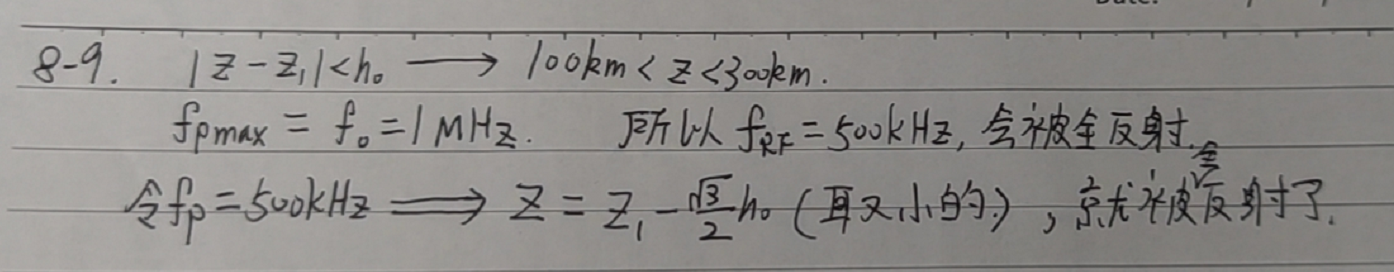 8-9. |z - z₁| < h₀ ⟶ 100km < z < 300km.
fpmax = f₀ = 1MHz. 所以 fRF = 500kHz, 会被全反射.
令fp = 500kHz ⟹ z = z₁ - √3/2 h₀ (取小的), 就被全反射了.